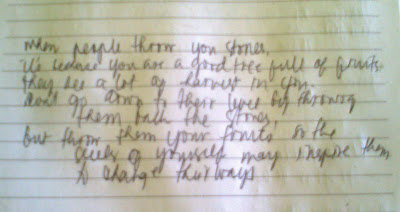 when people throw you stones,
it's because you are a good tree full of fruits.
they see a lot of harvest in you.
dont go down to their level by throwing
them back the stones,
but throw them your fruits so the
of yourself may inspire them
to change their ways